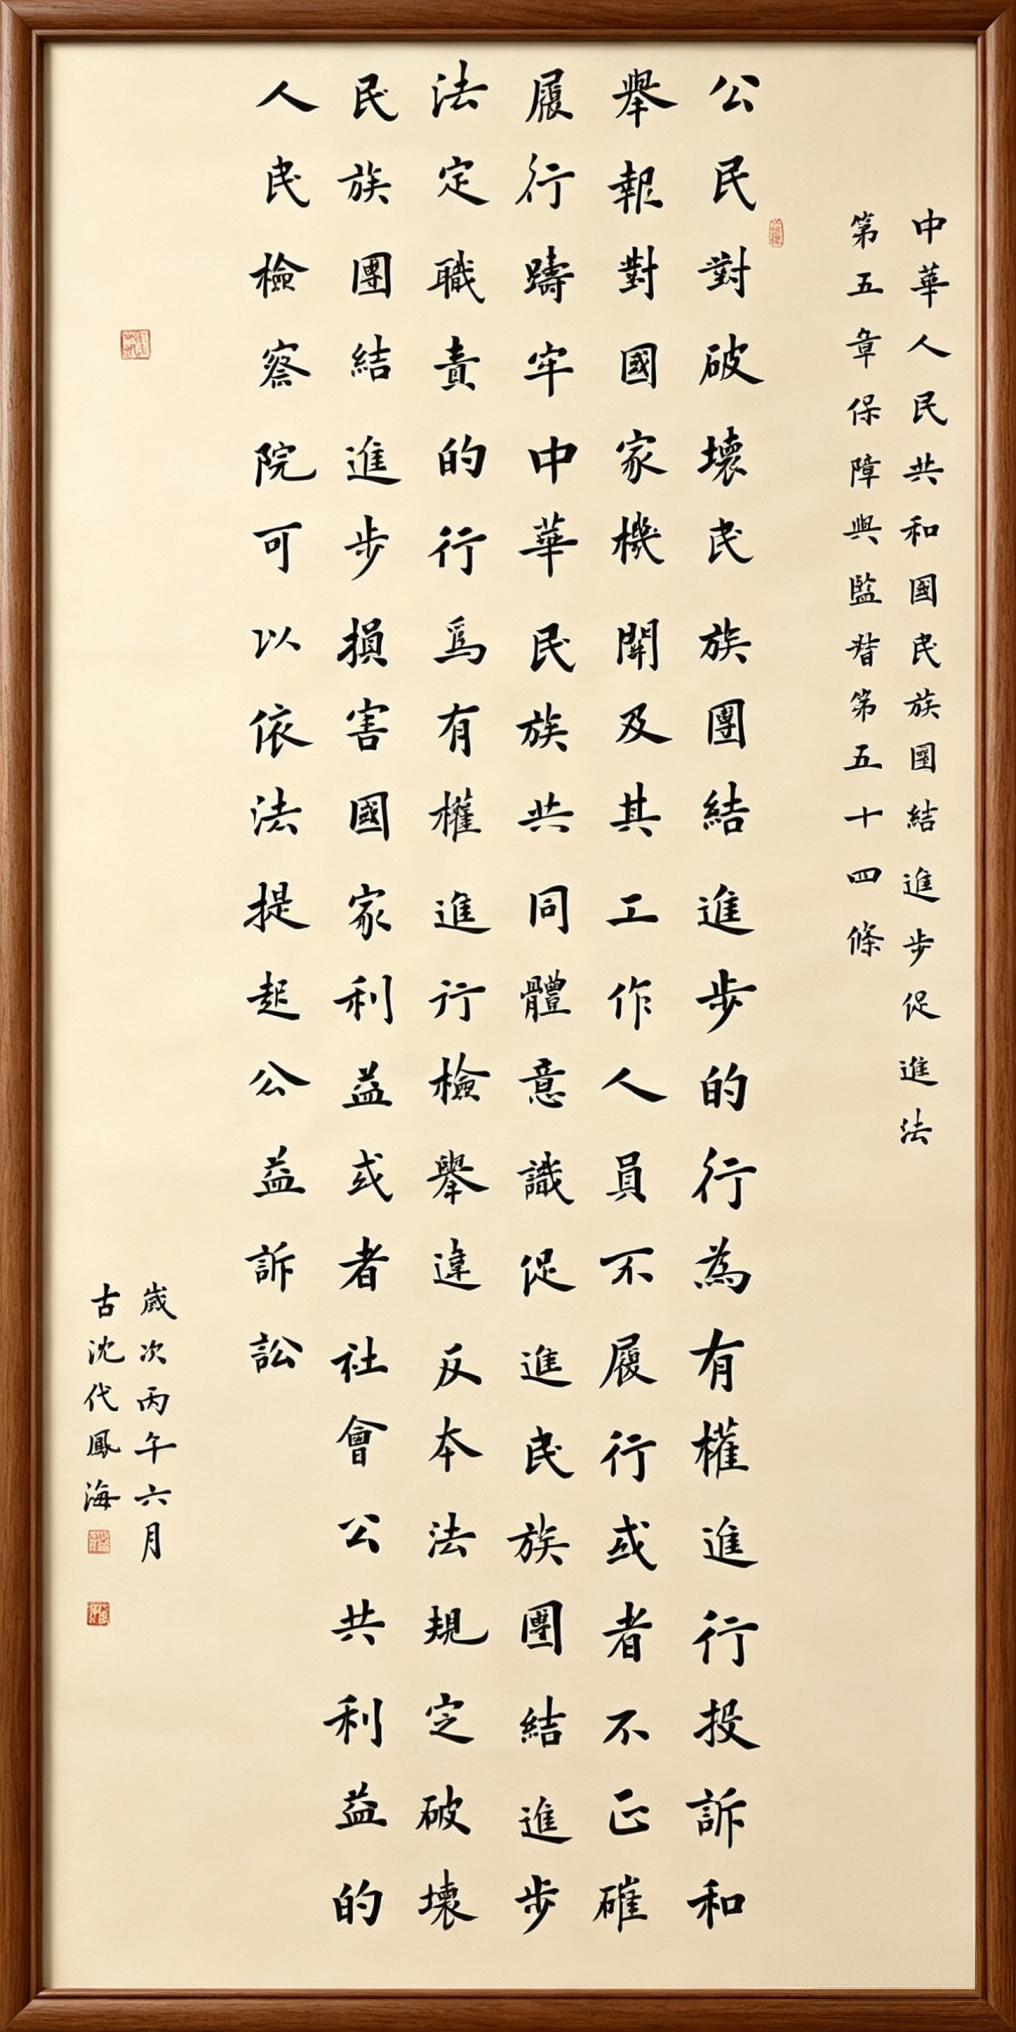 中華人民共和國民族團結進步促進法
第五章保障與監督第五十四條
公民對破壞民族團結進步的行為有權進行投訴和
舉報對國家機關及其工作人員不履行或者不正確
履行躊牢中華民族共同體意識促進民族團結進步
法定職責的行爲有權進行檢舉違反本法規定破壞
民族團結進步損害國家利益或者社會公共利益的
人民檢察院可以依法提起公益訴訟
歲次丙午六月
古沈代鳳海